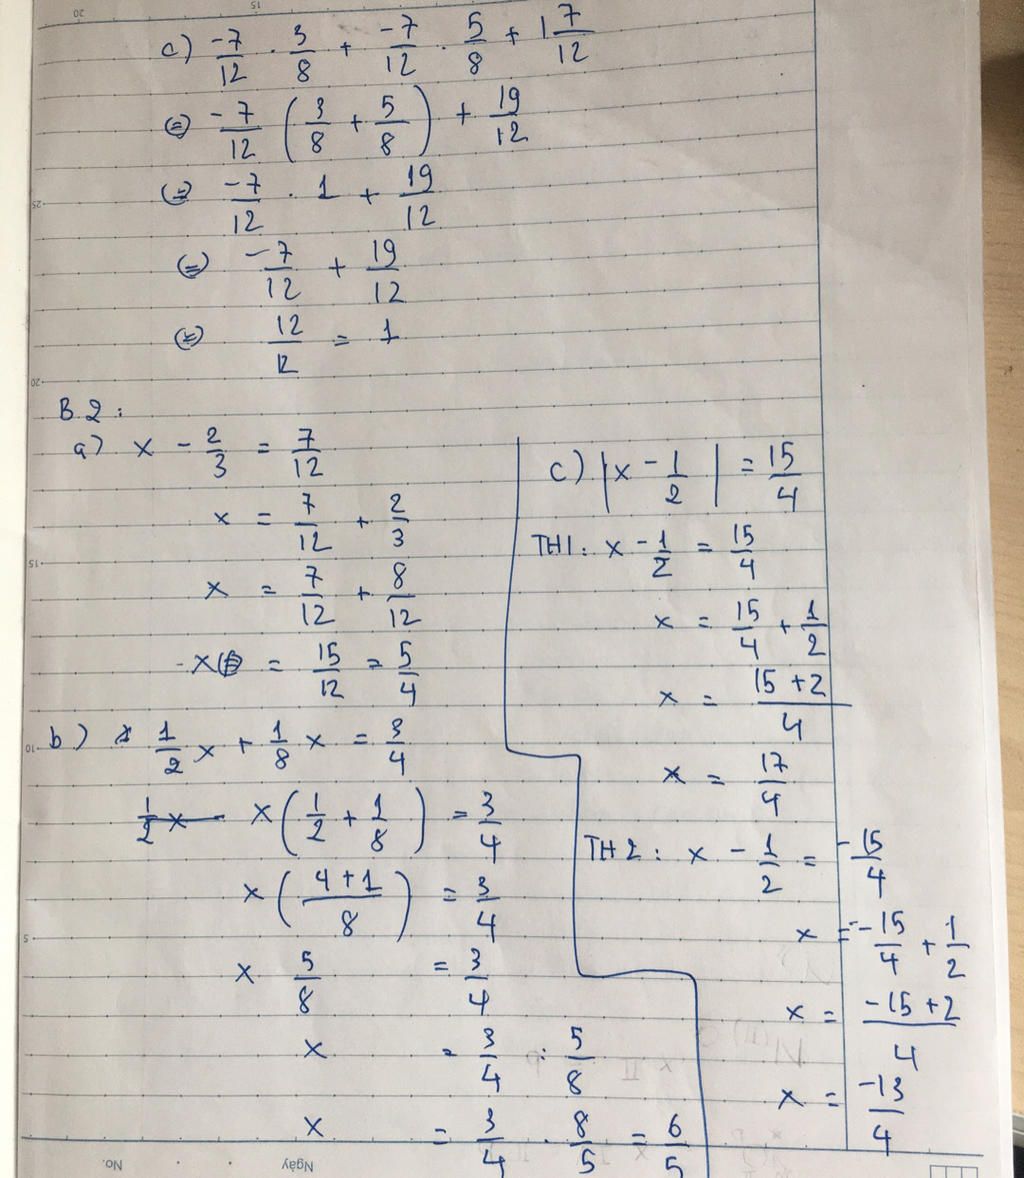 c) -7/12 . 3/8 + -7/12 . 5/8 + 1 7/12
(=) -7/12 (3/8 + 5/8) + 19/12
(=) -7/12 . 1 + 19/12
(=) -7/12 + 19/12
(=) 12/12 = 1
B.2:
a) x - 2/3 = 7/12
x = 7/12 + 2/3
x = 7/12 + 8/12
x = 15/12 = 5/4
b) 1/2 x + 1/8 x = 3/4
1/2 x x(1/2 + 1/8) = 3/4
x((4+1)/8) = 3/4
x 5/8 = 3/4
x = 3/4 : 5/8
x = 3/4 . 8/5 = 6/5
c) |x - 1/2| = 15/4
TH1: x - 1/2 = 15/4
x = 15/4 + 1/2
x = (15+2)/4
x = 17/4
TH2: x - 1/2 = -15/4
x = -15/4 + 1/2
x = (-15+2)/4
x = -13/4
No.
Ngày
20
15
25
20
15
10
5